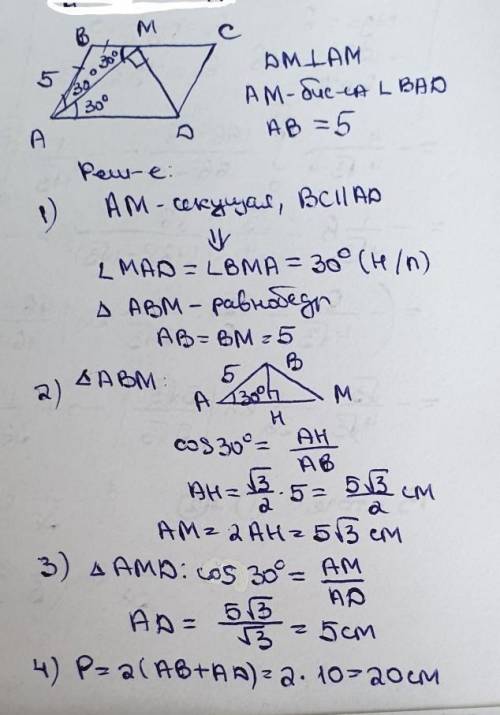 B M C
5 30° 30°
30°
A D
DM⊥AM
AM-бис-са ∠BAD
AB = 5
Реш-е:
1) AM - секущая, BC||AD
⇓
∠MAD = ∠BMA = 30° (н/л)
Δ ABM - равнобедр
AB = BM = 5
2) ΔABM:
5 B
A 30° M
H
cos 30° = AH/AB
AH = √3/2 · 5 = 5√3/2 см
AM = 2AH = 5√3 см
3) Δ AMD: cos 30° = AM/AD
AD = 5√3/√3 = 5 см
4) P = 2(AB+AD) = 2 · 10 = 20 см